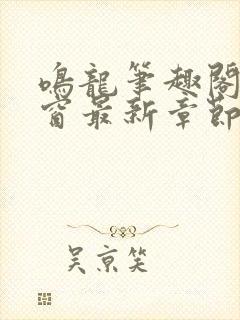 鳴龍筆趣閣
窗最新章節
吴京笑